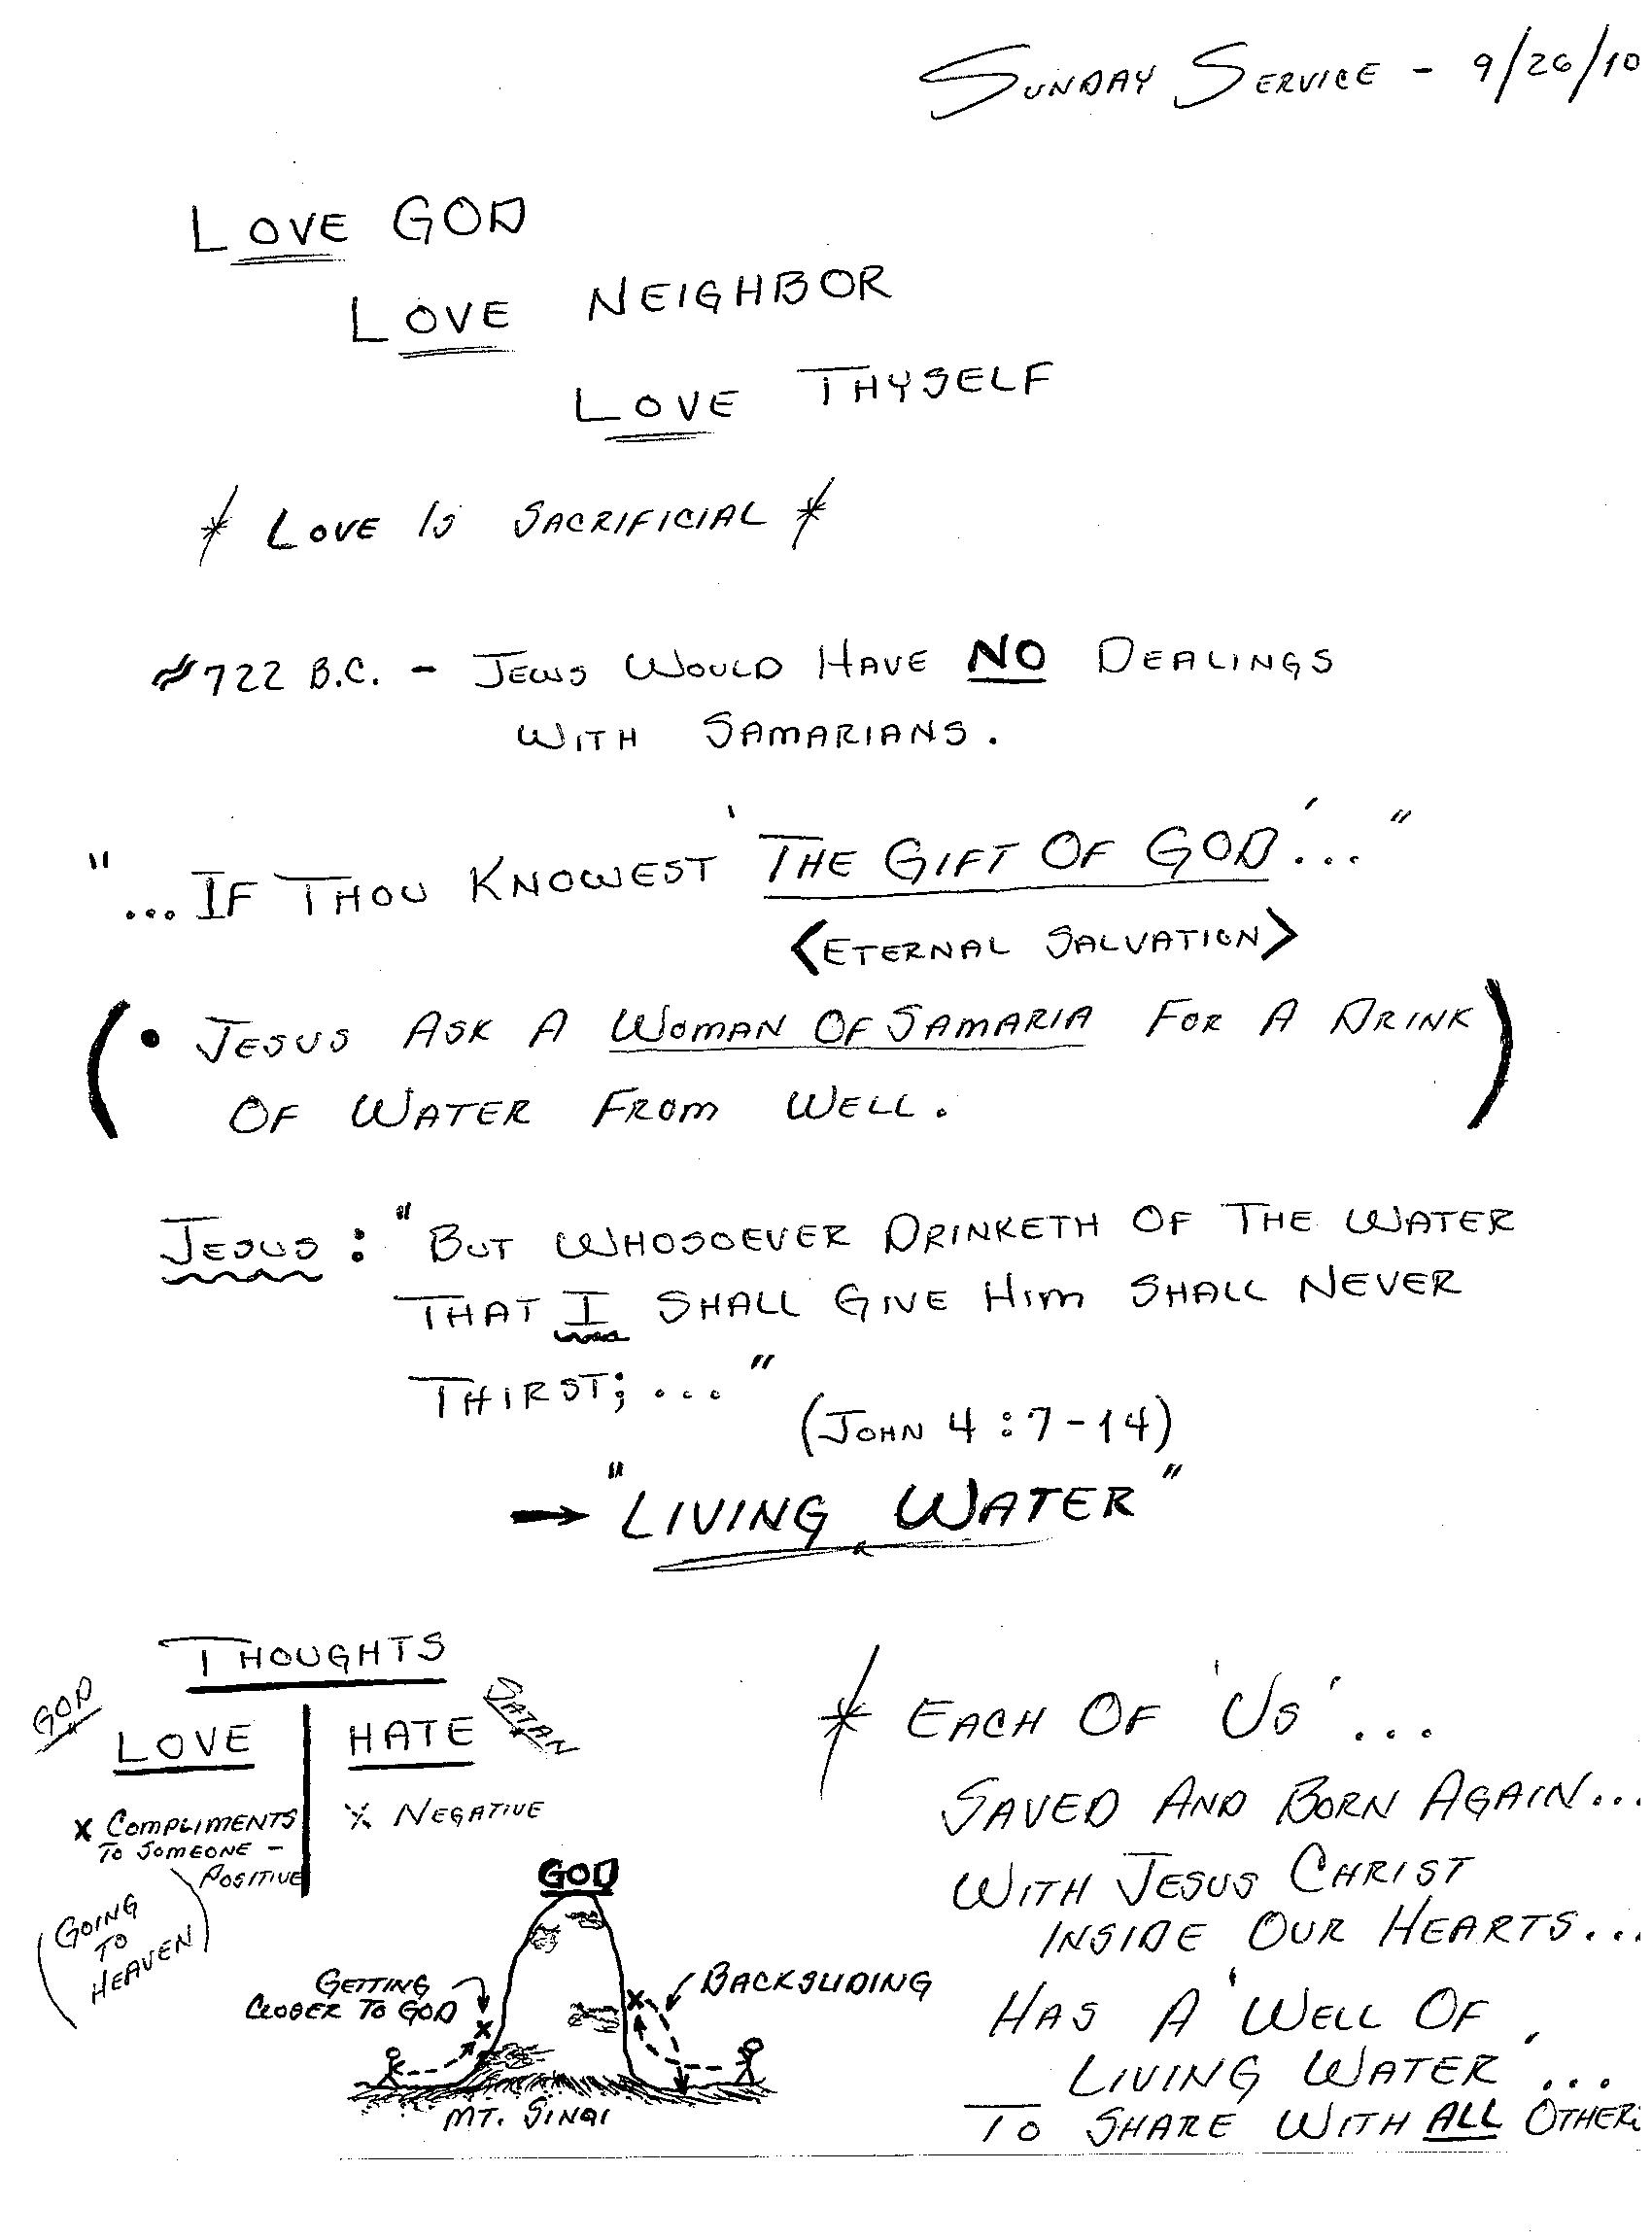 SUNDAY SERVICE - 9/26/10
LOVE GOD
LOVE NEIGHBOR
LOVE THYSELF
* LOVE IS SACRIFICIAL *
≈722 B.C. - JEWS WOULD HAVE NO DEALINGS
WITH SAMARIANS.
"...IF THOU KNOWEST 'THE GIFT OF GOD'..."
<ETERNAL SALVATION>
(• JESUS ASK A WOMAN OF SAMARIA FOR A DRINK
OF WATER FROM WELL.)
JESUS: "BUT WHOSOEVER DRINKETH OF THE WATER
THAT I SHALL GIVE HIM SHALL NEVER
THIRST; ..."
(JOHN 4:7-14)
→ "LIVING WATER"
THOUGHTS
GOD LOVE HATE SATAN
x COMPLIMENTS
TO SOMEONE -
POSITIVE
x NEGATIVE
(GOING
TO
HEAVEN)
GOD
GETTING
CLOSER TO GOD
BACKSLIDING
MT. SINAI
* EACH OF 'US'...
SAVED AND BORN AGAIN...
WITH JESUS CHRIST
INSIDE OUR HEARTS...
HAS A 'WELL OF
LIVING WATER'...
TO SHARE WITH ALL OTHERS